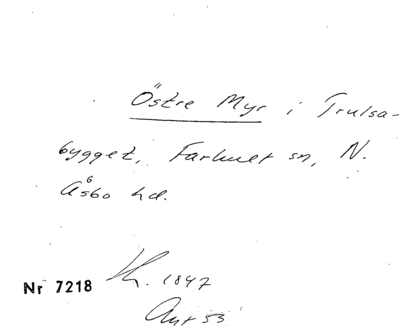 Östre Myr i Trulsa-
bygget, Farhult sn, N.
Åsbo hd.
Nr 7218
1847